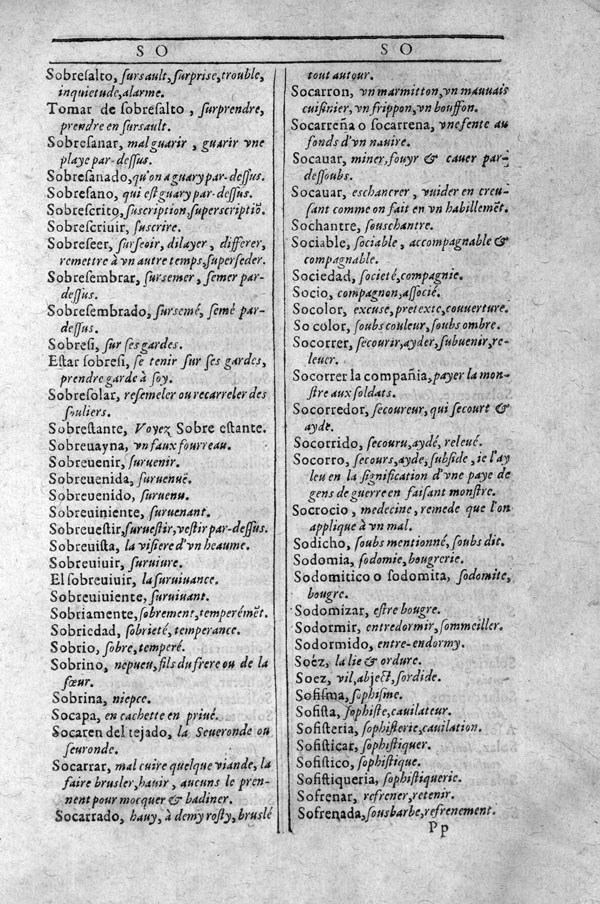 SO
Sobreſalto, ſurſault, ſurpriſe, trouble,
inquietude, alarme.
Tomar de ſobreſalto, ſurprendre,
prendre en ſurſault.
Sobreſanar, mal guarir, guarir vne
playe par-deſſus.
Sobreſanado, qu'on a guary par-deſſus.
Sobreſano, qui eſt guary par-deſſus.
Sobreſcrito, ſuſcription, ſuperſcriptiõ.
Sobreſcriuir, ſuſcrire.
Sobreſeer, ſurſeoir, dilayer, differer,
remettre à vn autre temps, ſuperſeder.
Sobreſembrar, ſurſemer, ſemer par-
deſſus.
Sobreſembrado, ſurſemé, ſemé par-
deſſus.
Sobreſi, ſur ſes gardes.
Eſtar ſobreſi, ſe tenir ſur ſes gardes,
prendre garde à ſoy.
Sobreſolar, reſemeler ou recarreler des
ſouliers.
Sobreſtante, Voyez Sobre eſtante.
Sobreuayna, vn faux fourreau.
Sobreuenir, ſuruenir.
Sobreuenida, ſuruenuë.
Sobreuenido, ſuruenu.
Sobreuiniente, ſuruenant.
Sobreueſtir, ſurueſtir, veſtir par-deſſus.
Sobreuiſta, la viſiere d'vn heaume.
Sobreuiuir, ſuruiure.
El ſobreuiuir, la ſuruiuance.
Sobreuiuiente, ſuruiuant.
Sobriamente, ſobrement, temperémẽt.
Sobriedad, ſobrieté, temperance.
Sobrio, ſobre, temperé.
Sobrino, nepueu, fils du frere ou de la
ſœur.
Sobrina, niepce.
Socapa, en cachette en priué.
Socaren del tejado, la Seueronde ou
ſeuronde.
Socarrar, mal cuire quelque viande, la
faire bruſler, hauir, aucuns le pren-
nent pour mocquer & badiner.
Socarrado, hauy, à demy roſty, bruſlé
SO
tout autour.
Socarron, vn marmitton, vn mauuais
cuiſinier, vn frippon, vn bouffon.
Socarreña o ſocarrena, vne fente au
fonds d'vn nauire.
Socauar, miner, fouyr & cauer par-
deſſoubs.
Socauar, eschancrer, vuider en creu-
ſant comme on fait en vn habillemẽt.
Sochantre, ſouschantre.
Sociable, ſociable, accompagnable &
compagnable.
Sociedad, ſocieté, compagnie.
Socio, compagnon, aſſocié.
Socolor, excuſe, pretexte, couuerture.
So color, ſoubs couleur, ſoubs ombre.
Socorrer, ſecourir, ayder, ſubuenir, re-
leuer.
Socorrer la compañia, payer la mon-
ſtre aux ſoldats.
Socorredor, ſecoureur, qui ſecourt &
ayde.
Socorrido, ſecouru, aydé, releué.
Socorro, ſecours, ayde, ſubſide, ie l'ay
leu en la ſignification d'vne paye de
gens de guerre en faiſant monſtre.
Socrocio, medecine, remede que l'on
applique à vn mal.
Sodicho, ſoubs mentionné, ſoubs dit.
Sodomia, ſodomie, bougrerie.
Sodomitico o ſodomita, ſodomite,
bougre.
Sodomizar, eſtre bougre.
Sodormir, entredormir, ſommeiller.
Sodormido, entre-endormy.
Soèz, la lie & ordure.
Soez, vil, abject, ſordide.
Sofiſma, ſophiſme.
Sofiſta, ſophiſte, cauilateur.
Sofiſteria, ſophiſterie, cauilation.
Sofiſticar, ſophiſtiquer.
Sofiſtico, ſophiſtique.
Sofiſtiqueria, ſophiſtiquerie.
Sofrenar, refrener, retenir.
Sofrenada, ſousbarbe, refrenement.
Pp